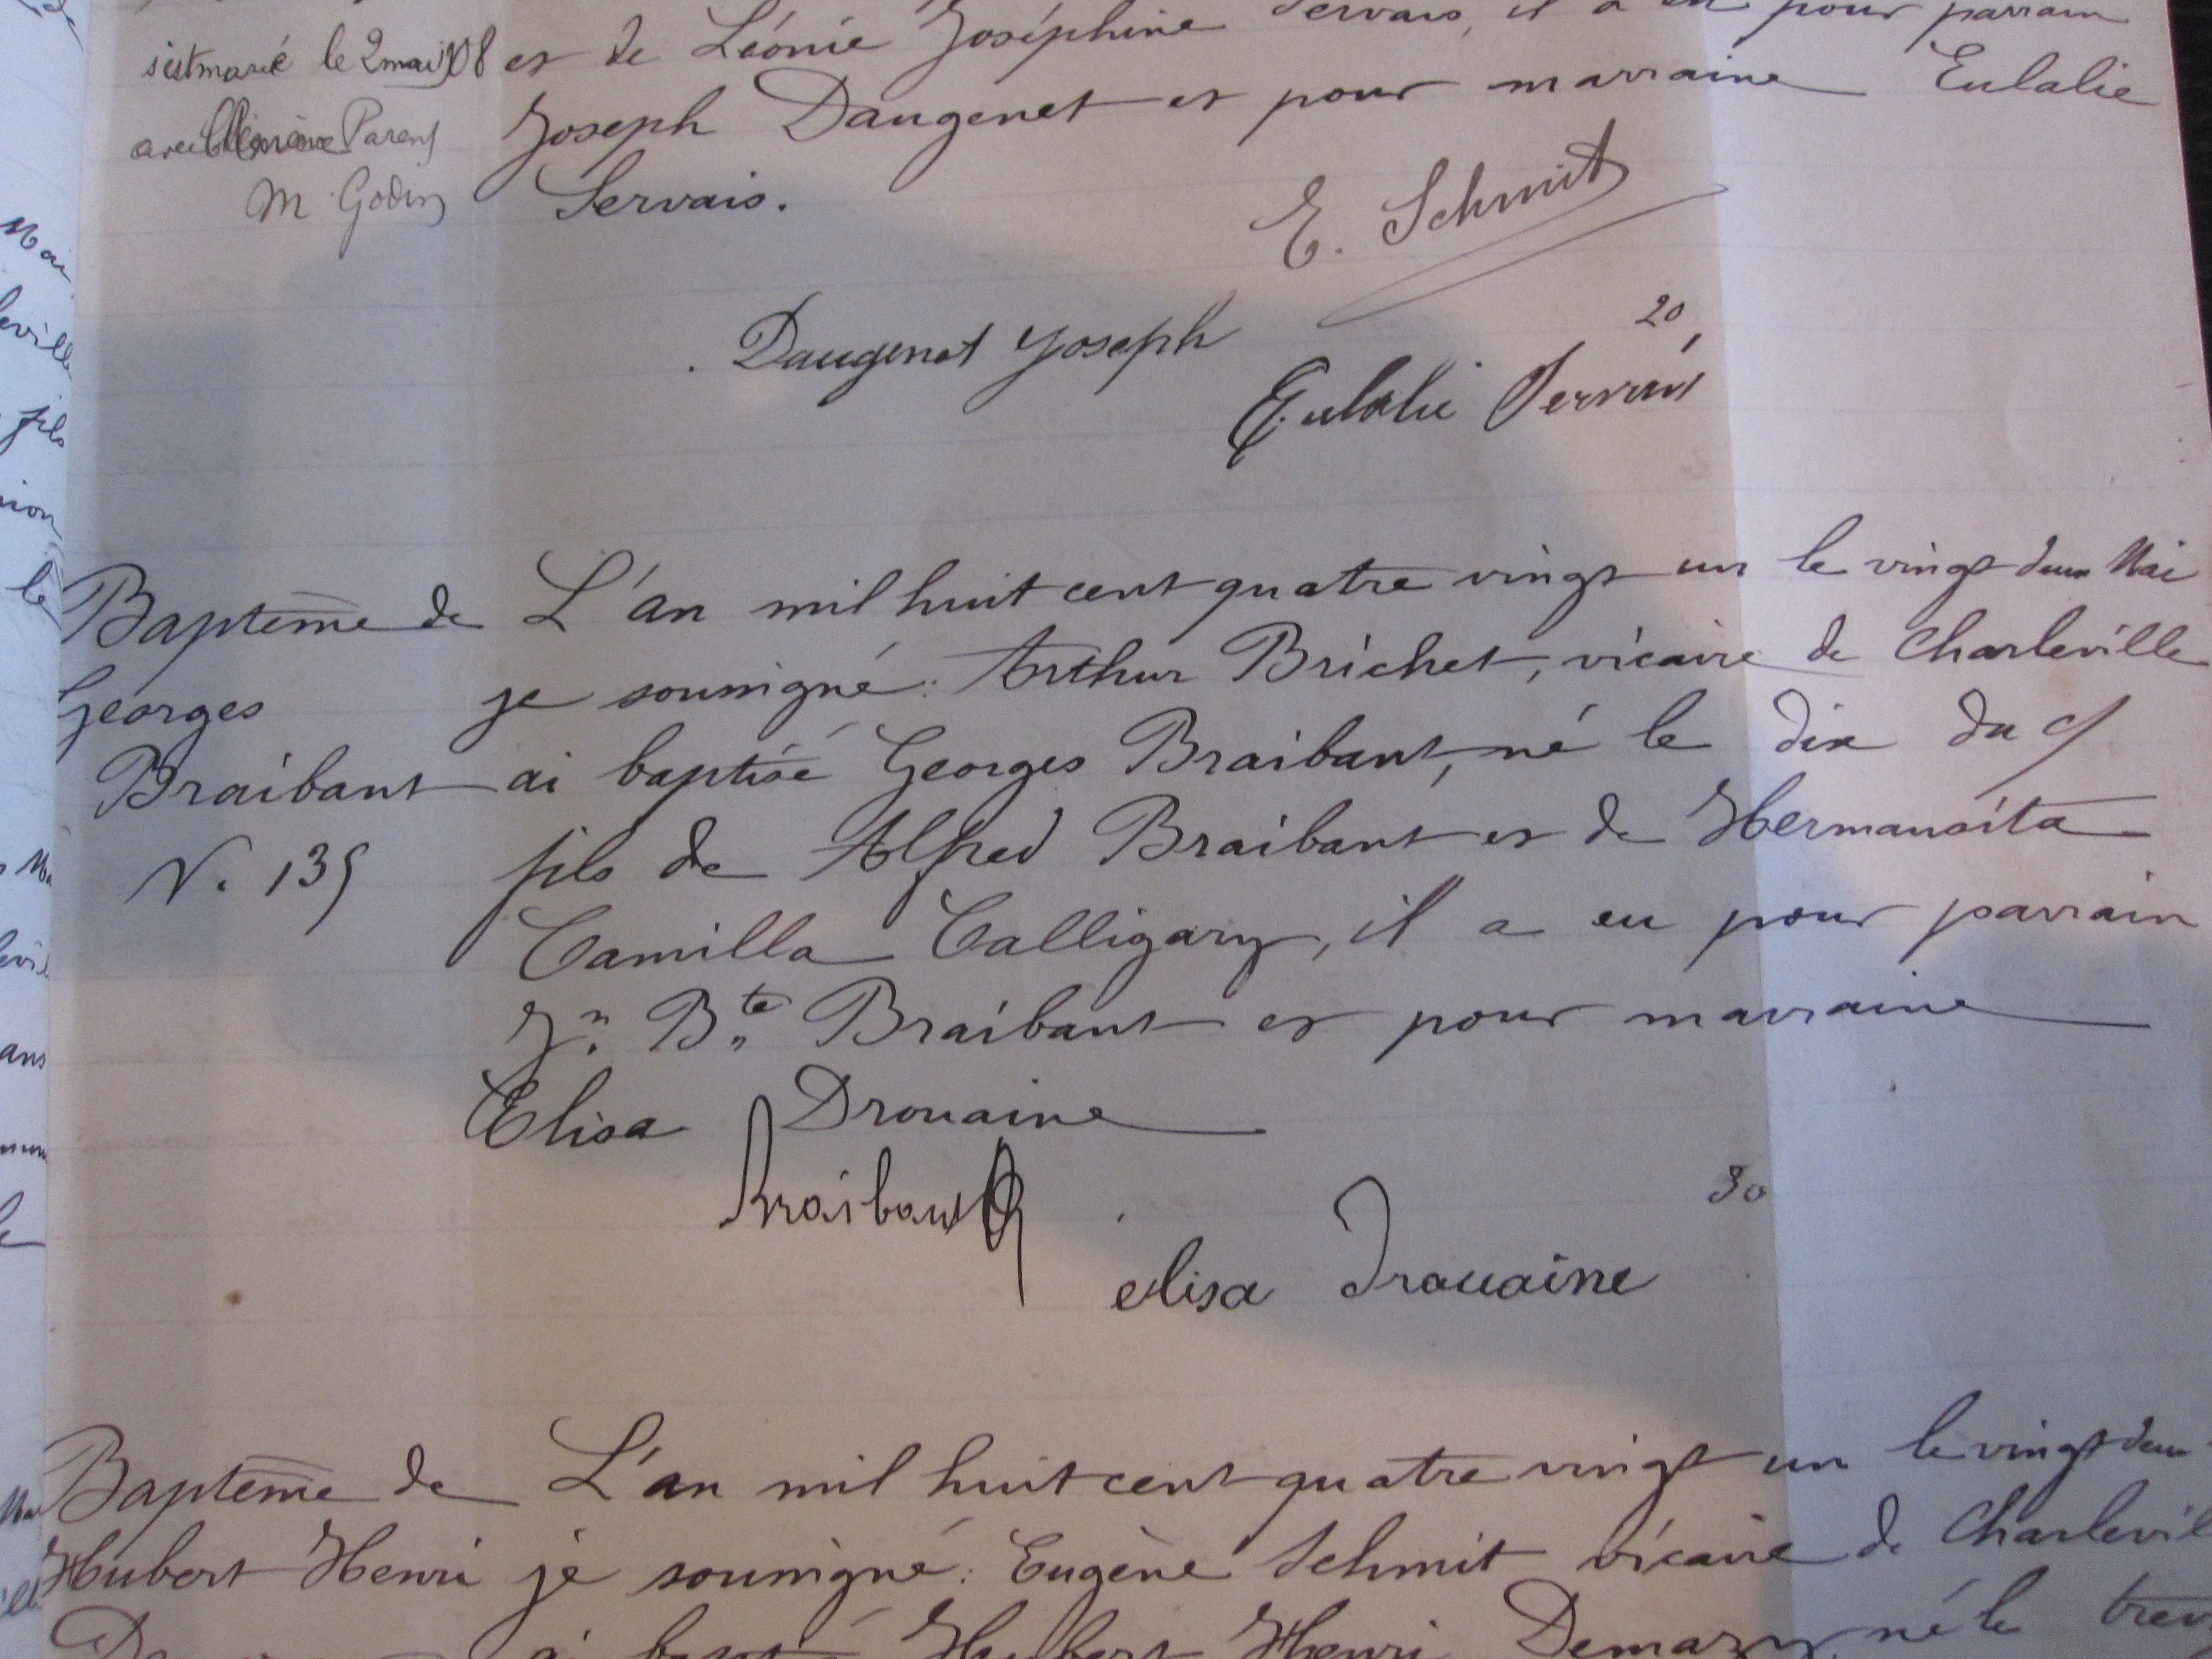 s'est marié le 2 mai 1908
avec Parent
M. Godin
et de Léonie Joséphine Servais, il a eu pour parrain
Joseph Daugenet et pour marraine Eulalie
Servais.
E. Schmit
Daugenet Joseph
20
Eulalie Servais
Baptême de
Georges
Braibant
N. 135
L'an mil huit cent quatre vingt un le vingt deux Mai
je soussigné: Arthur Brichet, vicaire de Charleville
ai baptisé Georges Braibant, né le dix du ct
fils de Alfred Braibant et de Hermansita
Camilla Calligary, il a eu pour parrain
Jn. Bte. Braibant et pour marraine
Elisa Drouaine
Braibant
30
elisa Drouaine
Baptême de
Hubert Henri
L'an mil huit cent quatre vingt un le vingt deux
je soussigné: Eugène Schmit vicaire de Charlevil
ai baptisé Hubert Henri Demazy, né le